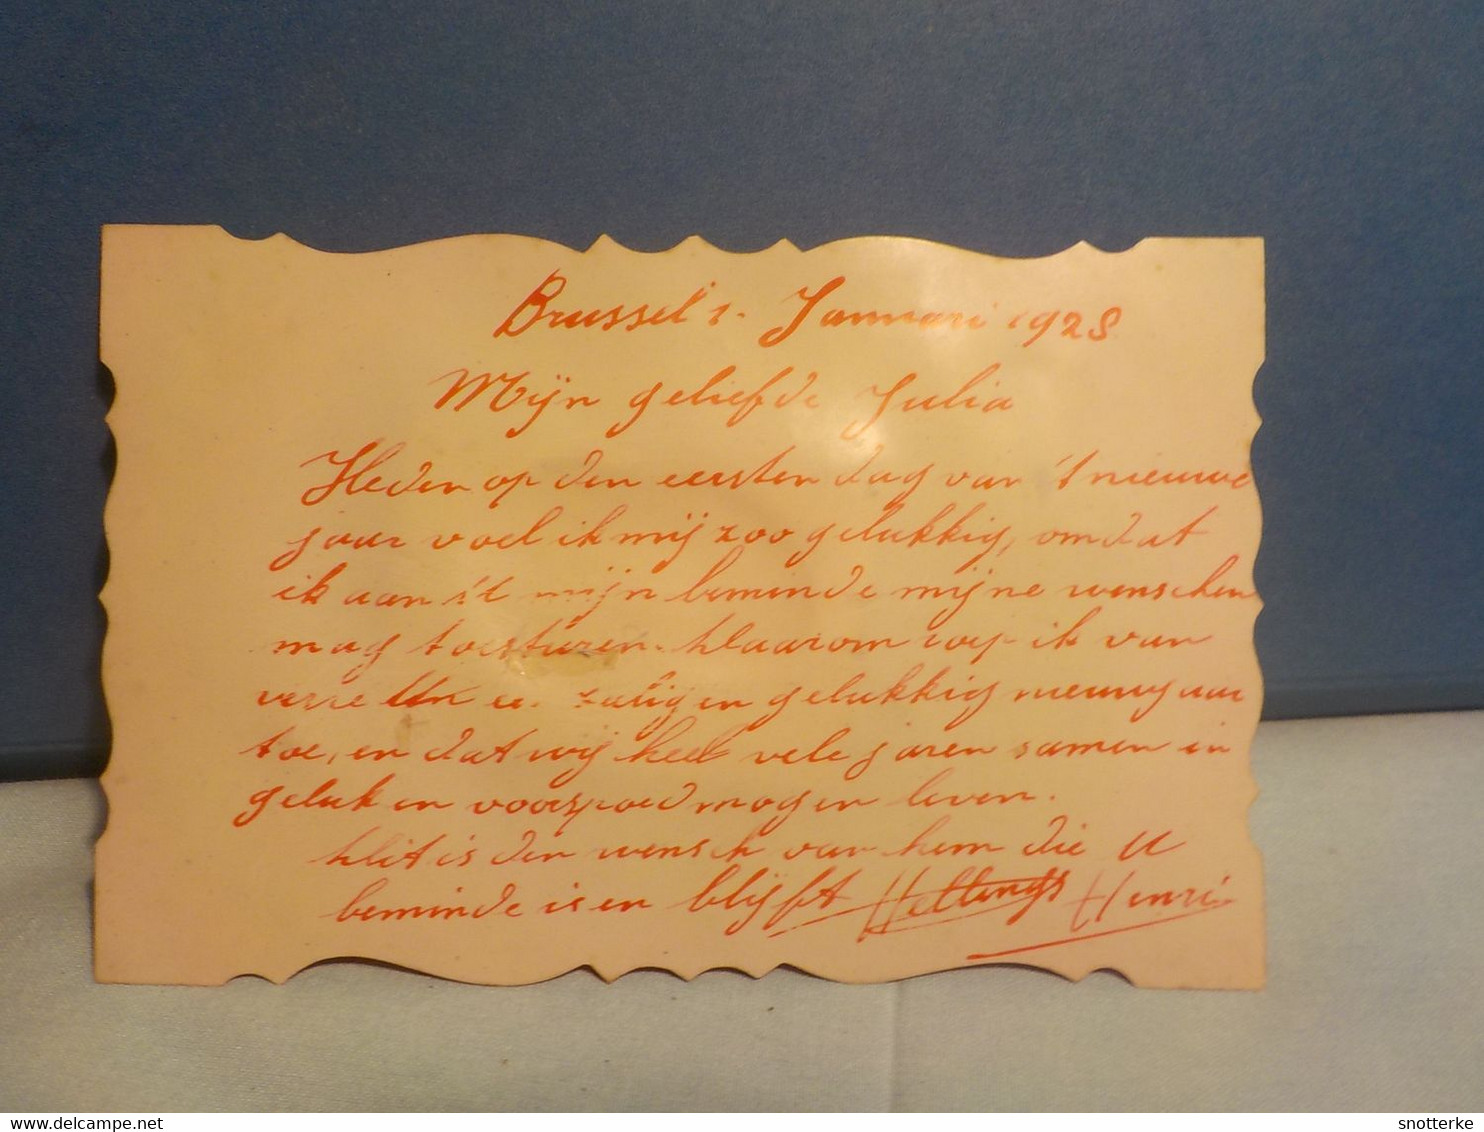 Brussel 1. Januari 1928
Mijn geliefde Julia
Heden op den eersten dag van 't nieuwe
jaar voel ik mij zoo gelukkig, omdat
ik aan mijn beminde mijne wenschen
mag toesturen. Daarom roep ik van
verre zalig en gelukkig nieuwjaar
toe, en dat wij heel vele jaren samen in
geluk en voorspoed mogen leven.
Dit is den wensch van hem die U
beminde is en blijft Hellings Henri
snotterke